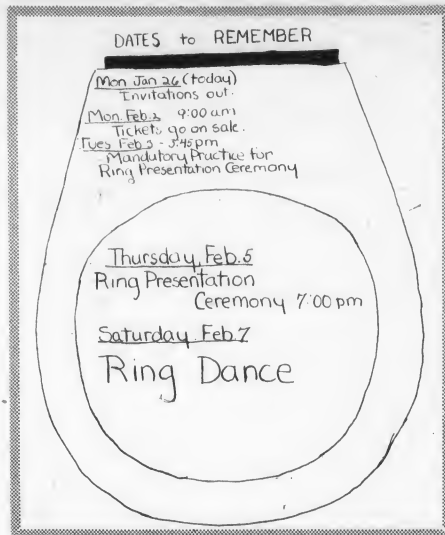 DATES to REMEMBER
Mon Jan 26 (today)
Invitations out.
Mon. Feb. 2 9:00 am
Tickets go on sale.
Tues Feb 3 - 5:45 pm
- Mandutory Practice for
Ring Presentation Ceremony
Thursday, Feb. 5
Ring Presentation
Ceremony 7:00 pm
Saturday Feb 7
Ring Dance